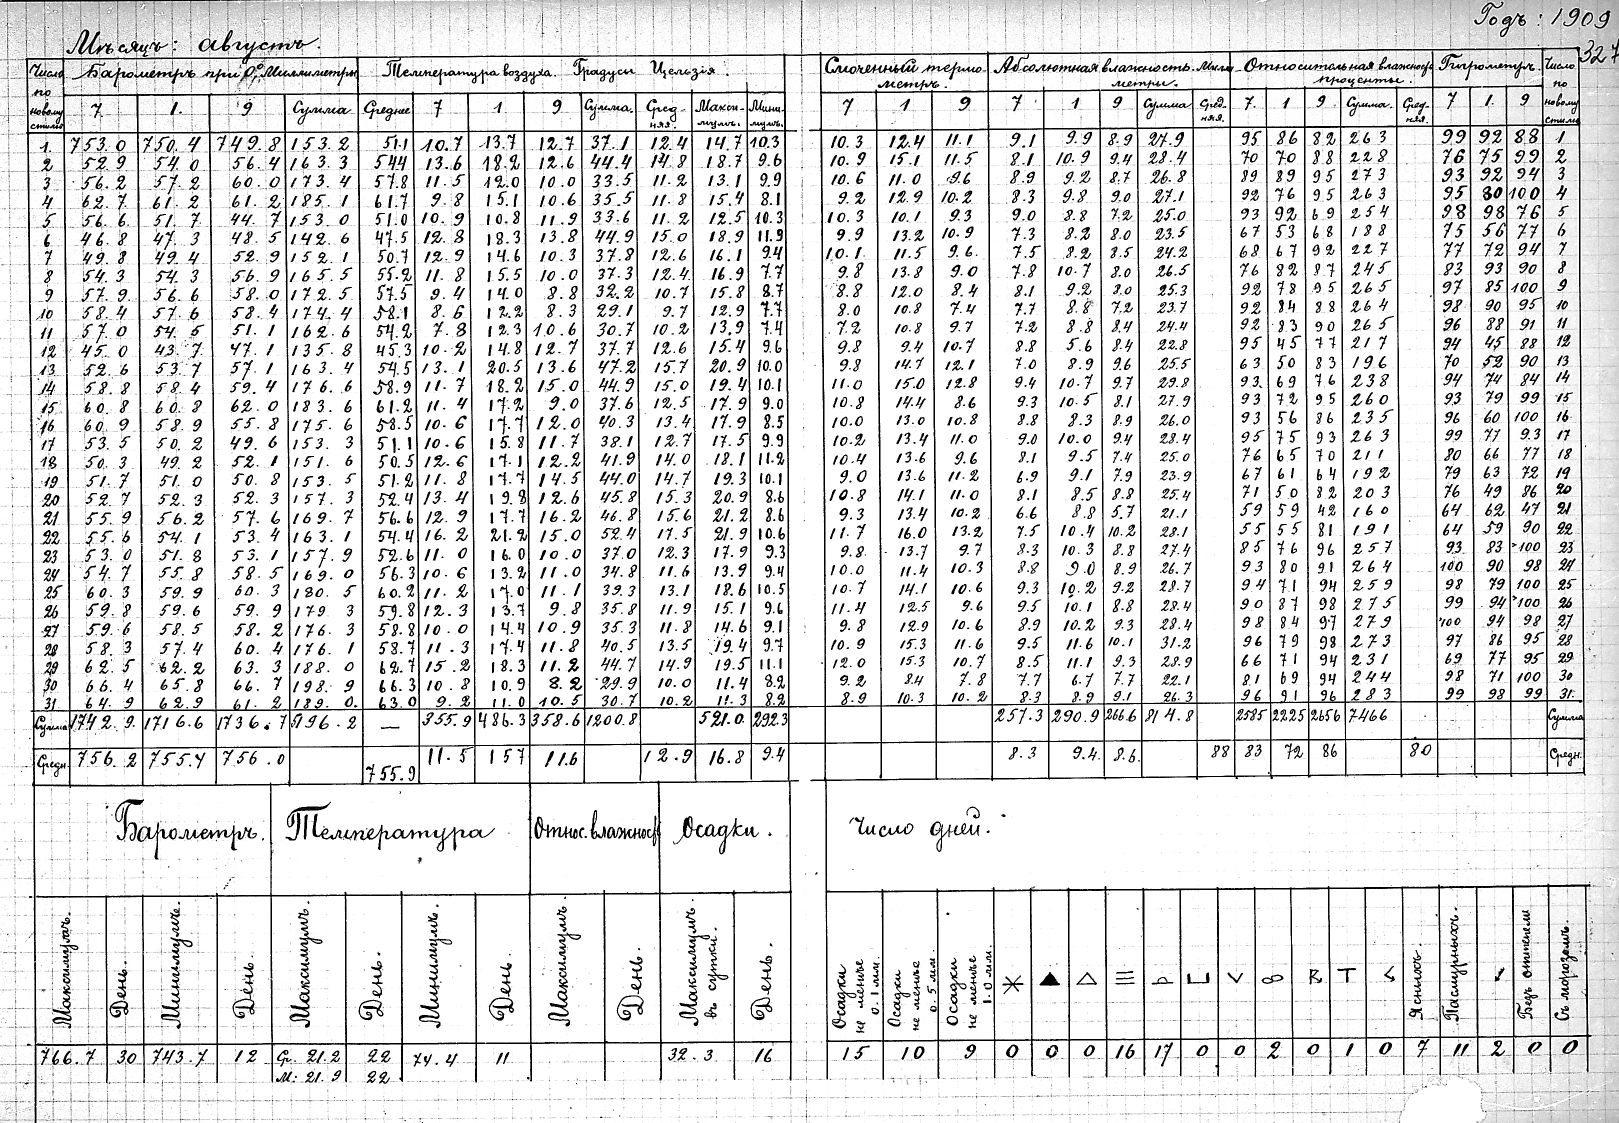 Годъ: 1909
327
Мѣсяцъ: августъ.
Число по новому стилю Барометръ при 0° Миллиметры Температура воздуха. Градусы Цельзія. Смоченный термометръ. Абсолютная влажность. Миллиметры. Относительная влажность проценты. Гигрометръ. Число по новому стилю
7. 1. 9 Сумма Среднее 7 1 9 Сумма. Средняя. Максимумъ. Минимумъ. 7 1 9 7 1 9 Сумма Средняя. 7. 1 9. Сумма. Средняя. 7 1. 9
1. 753.0 750.4 749.8 153.2 51.1 10.7 13.7 12.7 37.1 12.4 14.7 10.3 10.3 12.4 11.1 9.1 9.9 8.9 27.9 95 86 82 263 99 92 88 1
2 52.9 54.0 56.4 163.3 54.4 13.6 18.2 12.6 44.4 14.8 18.7 9.6 10.9 15.1 11.5 8.1 10.9 9.4 28.4 70 70 88 228 76 75 99 2
3 56.2 57.2 60.0 173.4 57.8 11.5 12.0 10.0 33.5 11.2 13.1 9.9 10.6 11.0 9.6 8.9 9.2 8.7 26.8 89 89 95 273 93 92 94 3
4 62.7 61.2 61.2 185.1 61.7 9.8 15.1 10.6 35.5 11.8 15.4 8.1 9.2 12.9 10.2 8.3 9.8 9.0 27.1 92 76 95 263 95 80 100 4
5 56.6 51.7 44.7 153.0 51.0 10.9 10.8 11.9 33.6 11.2 12.5 10.3 10.3 10.1 9.3 9.0 8.8 7.2 25.0 93 92 69 254 98 98 76 5
6 46.8 47.3 48.5 142.6 47.5 12.8 18.3 13.8 44.9 15.0 18.9 11.9 9.9 13.2 10.9 7.3 8.2 8.0 23.5 67 53 68 188 75 56 77 6
7 49.8 49.4 52.9 152.1 50.7 12.9 14.6 10.3 37.8 12.6 16.1 9.4 10.1 11.5 9.6. 7.5 8.2 8.5 24.2 68 67 92 227 77 72 94 7
8 54.3 54.3 56.9 165.5 55.2 11.8 15.5 10.0 37.3 12.4 16.9 7.7 9.8 13.8 9.0 7.8 10.7 8.0 26.5 76 82 87 245 83 93 90 8
9 57.9 56.6 58.0 172.5 57.5 9.4 14.0 8.8 32.2 10.7 15.8 8.7 8.8 12.0 8.4 8.1 9.2 8.0 25.3 92 78 95 265 97 85 100 9
10 58.4 57.6 58.4 174.4 58.1 8.6 12.2 8.3 29.1 9.7 12.9 7.7 8.0 10.8 7.4 7.7 8.8 7.2 23.7 92 84 88 264 98 90 95 10
11 57.0 54.5 51.1 162.6 54.2 7.8 12.3 10.6 30.7 10.2 13.9 7.4 7.2 10.8 9.7 7.2 8.8 8.4 24.4 92 83 90 265 96 88 91 11
12 45.0 43.7 47.1 135.8 45.3 10.2 14.8 12.7 37.7 12.6 15.4 9.6 9.8 9.4 10.7 8.8 5.6 8.4 22.8 95 45 77 217 94 45 88 12
13 52.6 53.7 57.1 163.4 54.5 13.1 20.5 13.6 47.2 15.7 20.9 10.0 9.8 14.7 12.1 7.0 8.9 9.6 25.5 63 50 83 196 70 52 90 13
14 58.8 58.4 59.4 176.6 58.9 11.7 18.2 15.0 44.9 15.0 19.4 10.1 11.0 15.0 12.8 9.4 10.7 9.7 29.8 93 69 76 238 94 74 84 14
15 60.8 60.8 62.0 183.6 61.2 11.4 17.2 9.0 37.6 12.5 17.9 9.0 10.8 14.4 8.6 9.3 10.5 8.1 27.9 93 72 95 260 93 79 99 15
16 60.9 58.9 55.8 175.6 58.5 10.6 17.7 12.0 40.3 13.4 17.9 8.5 10.0 13.0 10.8 8.8 8.3 8.9 26.0 93 56 86 235 96 60 100 16
17 53.5 50.2 49.6 153.3 51.1 10.6 15.8 11.7 38.1 12.7 17.5 9.9 10.2 13.4 11.0 9.0 10.0 9.4 28.4 95 75 93 263 99 77 9.3 17
18 50.3 49.2 52.1 151.6 50.5 12.6 17.1 12.2 41.9 14.0 18.1 11.2 10.4 13.6 9.6 8.1 9.5 7.4 25.0 76 65 70 211 80 66 77 18
19 51.7 51.0 50.8 153.5 51.2 11.8 17.7 14.5 44.0 14.7 19.3 10.1 9.0 13.6 11.2 6.9 9.1 7.9 23.9 67 61 64 192 79 63 72 19
20 52.7 52.3 52.3 157.3 52.4 13.4 19.8 12.6 45.8 15.3 20.9 8.6 10.8 14.1 11.0 8.1 8.5 8.8 25.4 71 50 82 203 76 49 86 20
21 55.9 56.2 57.6 169.7 56.6 12.9 17.7 16.2 46.8 15.6 21.2 8.6 9.3 13.4 10.2 6.6 8.8 5.7 21.1 59 59 42 160 64 62 47 21
22 55.6 54.1 53.4 163.1 54.4 16.2 21.2 15.0 52.4 17.5 21.9 10.6 11.7 16.0 13.2 7.5 10.4 10.2 28.1 55 55 81 191 64 59 90 22
23 53.0 51.8 53.1 157.9 52.6 11.0 16.0 10.0 37.0 12.3 17.9 9.3 9.8 13.7 9.7 8.3 10.3 8.8 27.4 85 76 96 257 93 83 >100 23
24 54.7 55.8 58.5 169.0 56.3 10.6 13.2 11.0 34.8 11.6 13.9 9.4 10.0 11.4 10.3 8.8 9.0 8.9 26.7 93 80 91 264 100 90 98 24
25 60.3 59.9 60.3 180.5 60.2 11.2 17.0 11.1 39.3 13.1 18.6 10.5 10.7 14.1 10.6 9.3 10.2 9.2 28.7 94 71 94 259 98 79 100 25
26 59.8 59.6 59.9 179.3 59.8 12.3 13.7 9.8 35.8 11.9 15.1 9.6 11.4 12.5 9.6 9.5 10.1 8.8 28.4 90 87 98 275 99 94 >100 26
27 59.6 58.5 58.2 176.3 58.8 10.0 14.4 10.9 35.3 11.8 14.6 9.1 9.8 12.9 10.6 8.9 10.2 9.3 28.4 98 84 97 279 100 94 98 27
28 58.3 57.4 60.4 176.1 58.7 11.3 17.4 11.8 40.5 13.5 19.4 9.7 10.9 15.3 11.6 9.5 11.6 10.1 31.2 96 79 98 273 97 86 95 28
29 62.5 62.2 63.3 188.0 62.7 15.2 18.3 11.2 44.7 14.9 19.5 11.1 12.0 15.3 10.7 8.5 11.1 9.3 28.9 66 71 94 231 69 77 95 29
30 66.4 65.8 66.7 198.9 66.3 10.8 10.9 8.2 29.9 10.0 11.4 8.2 9.2 8.4 7.8 7.7 6.7 7.7 22.1 81 69 94 244 98 71 100 30
31 64.9 62.9 61.2 189.0. 63.0 9.2 11.0 10.5 30.7 10.2 11.3 8.2 8.9 10.3 10.2 8.3 8.9 9.1 26.3 96 91 96 283 99 98 99 31.
Сумма 1742.9. 1716.6 1736.7 5196.2 — 355.9 486.3 358.6 1200.8 521.0 292.3 257.3 290.9 266.6 814.8 2585 2225 2656 7466 Сумма
Средн. 756.2 755.4 756.0 755.9 11.5 157 11.6 12.9 16.8 9.4 8.3 9.4. 8.6. 88 83 72 86 80 Средн.
Барометръ. Температура Относ. влажность Осадки. Число дней.
Максимумъ. День. Минимумъ. День. Максимумъ. День. Минимумъ. День. Максимумъ. День. Максимумъ въ сутки. День. Осадки не менѣе 0.1 мм. Осадки не менѣе 0.5 мм Осадки не менѣе 1.0 мм. Ясныхъ. Пасмурныхъ. Безъ оттепели Съ морозомъ.
766.7 30 743.7 12 Ср. 21.2 22 74.4 11 32.3 16 15 10 9 0 0 0 16 17 0 0 2 0 1 0 7 11 2 0 0
М: 21.9 22